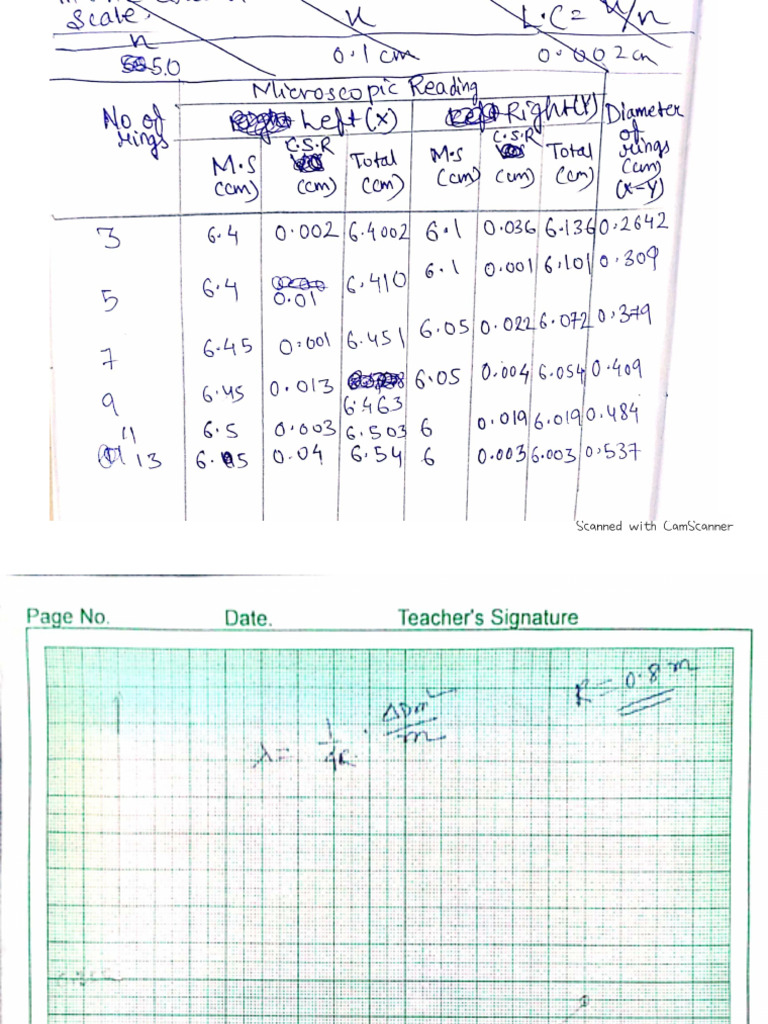 Scale.
x
L.C = x/n
n
50
0.1 cm
0.002 cm
Microscopic Reading
No. of rings
Left (X)
Right (Y)
Diameter of rings (cm) (X-Y)
M.S (cm)
C.S.R (cm)
Total (cm)
M.S (cm)
C.S.R (cm)
Total (cm)
3 6.4 0.002 6.4002 6.1 0.036 6.136 0.2642
5 6.4 0.01 6.410 6.1 0.001 6.101 0.309
7 6.45 0.001 6.451 6.05 0.022 6.072 0.379
9 6.45 0.013 6.463 6.05 0.004 6.054 0.409
11 6.5 0.003 6.503 6 0.019 6.019 0.484
13 6.5 0.04 6.54 6 0.003 6.003 0.537
Scanned with CamScanner
Page No. Date. Teacher's Signature
R = 0.8 m
λ = 1/4R . ΔDm²/m